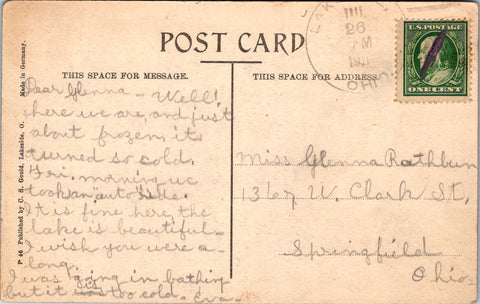 POST CARD
THIS SPACE FOR MESSAGE.
THIS SPACE FOR ADDRESS.
U.S. POSTAGE
ONE CENT
26
OHIO
Made in Germany.
P 44 Published by C. S. Gould, Lakeside, O.
Dear Glenna - Well!
here we are and just
about frozen, its
turned so cold.
Fri. morning we
took an "auto" ride.
It is fine here, the
lake is beautiful -
I wish you were a-
long.
I was going in bathing
but it is too cold. Eva-
Miss Glenna Rathbun
1367 W. Clark St,
Springfield
Ohio-